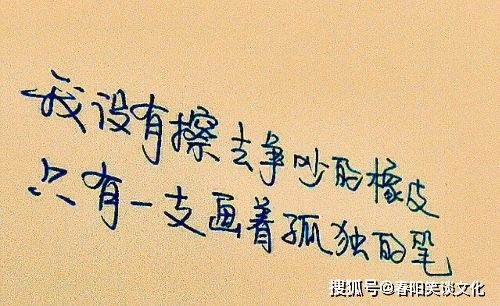 我没有擦去争吵的橡皮
只有一支画着孤独的笔
搜狐号@春阳笑谈文化